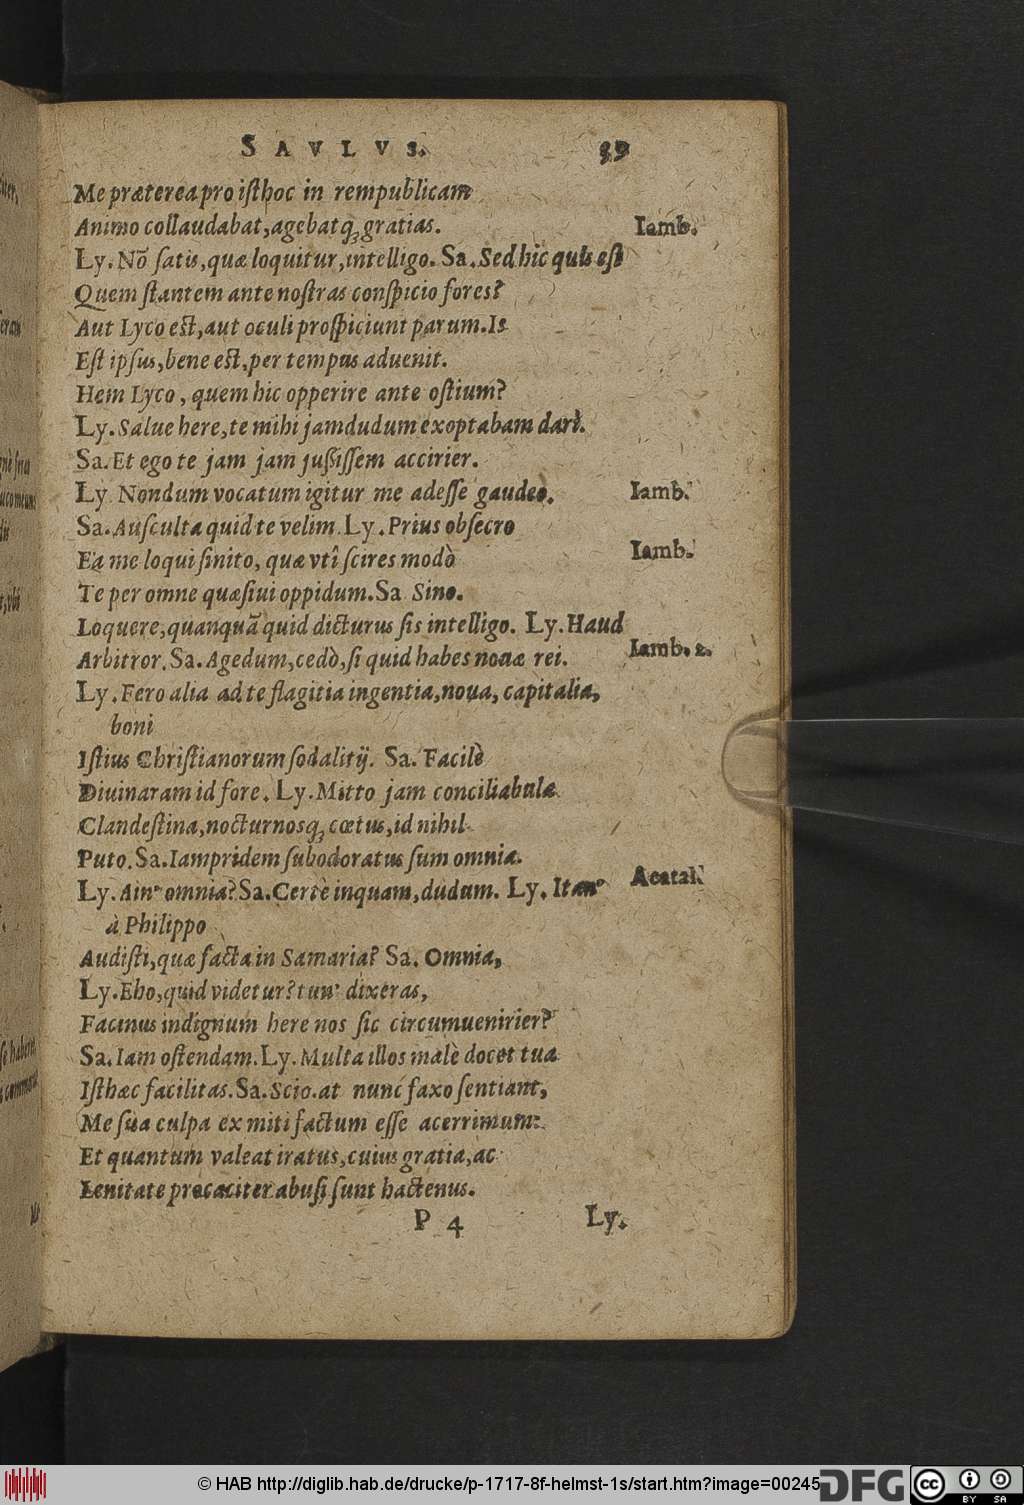 SAVLVS. 59
Me prætereapro isthoc in rempublicam
Animo collaudabat, agebatq; gratias. Iamb.
Ly. Nõ satis, quæ loquitur, intelligo. Sa. Sed hic quis est
Quem stantem ante nostras conspicio fores?
Aut Lyco est, aut oculi prospiciunt parum. Is
Est ipsus, bene est, per tempus aduenit.
Hem Lyco, quem hic opperire ante ostium?
Ly. Salue here, te mihi jamdudum exoptabam dari.
Sa. Et ego te jam jam jussissem accirier.
Ly Nondum vocatum igitur me adesse gaudeo. Iamb.
Sa. Ausculta quid te velim. Ly. Prius obsecro
Ea me loqui sinito, quæ vtî scires modò Iamb.
Te per omne quæsiui oppidum. Sa Sino.
Loquere, quanquã quid dicturus sis intelligo. Ly. Haud
Arbitror. Sa. Agedum, cedò, si quid habes nouæ rei. Iamb. 2.
Ly. Fero alia ad te flagitia ingentia, noua, capitalia,
boni
Istius Christianorum sodalitij. Sa. Facilè
Diuinaram id fore. Ly. Mitto jam conciliabula
Clandestina, nocturnosq; cœtus, id nihil
Puto. Sa. Iampridem subodoratus sum omnia.
Ly. Ain' omnia? Sa. Certè inquam, dudum. Ly. Itan' Acatal.
à Philippo
Audisti, quæ facta in Samaria? Sa. Omnia,
Ly. Eho, quid videtur? tun' dixeras,
Facinus indignum here nos sic circumuenirier?
Sa. Iam ostendam. Ly. Multa illos malè docet tua
Isthæc facilitas. Sa. Scio. at nunc faxo sentiant,
Me sua culpa ex miti factum esse acerrimum:
Et quantum valeat iratus, cuius gratia, ac
Lenitate procaciter abusi sunt hactenus.
P 4 Ly.
© HAB http://diglib.hab.de/drucke/p-1717-8f-helmst-1s/start.htm?image=00245
DFG
cc BY SA